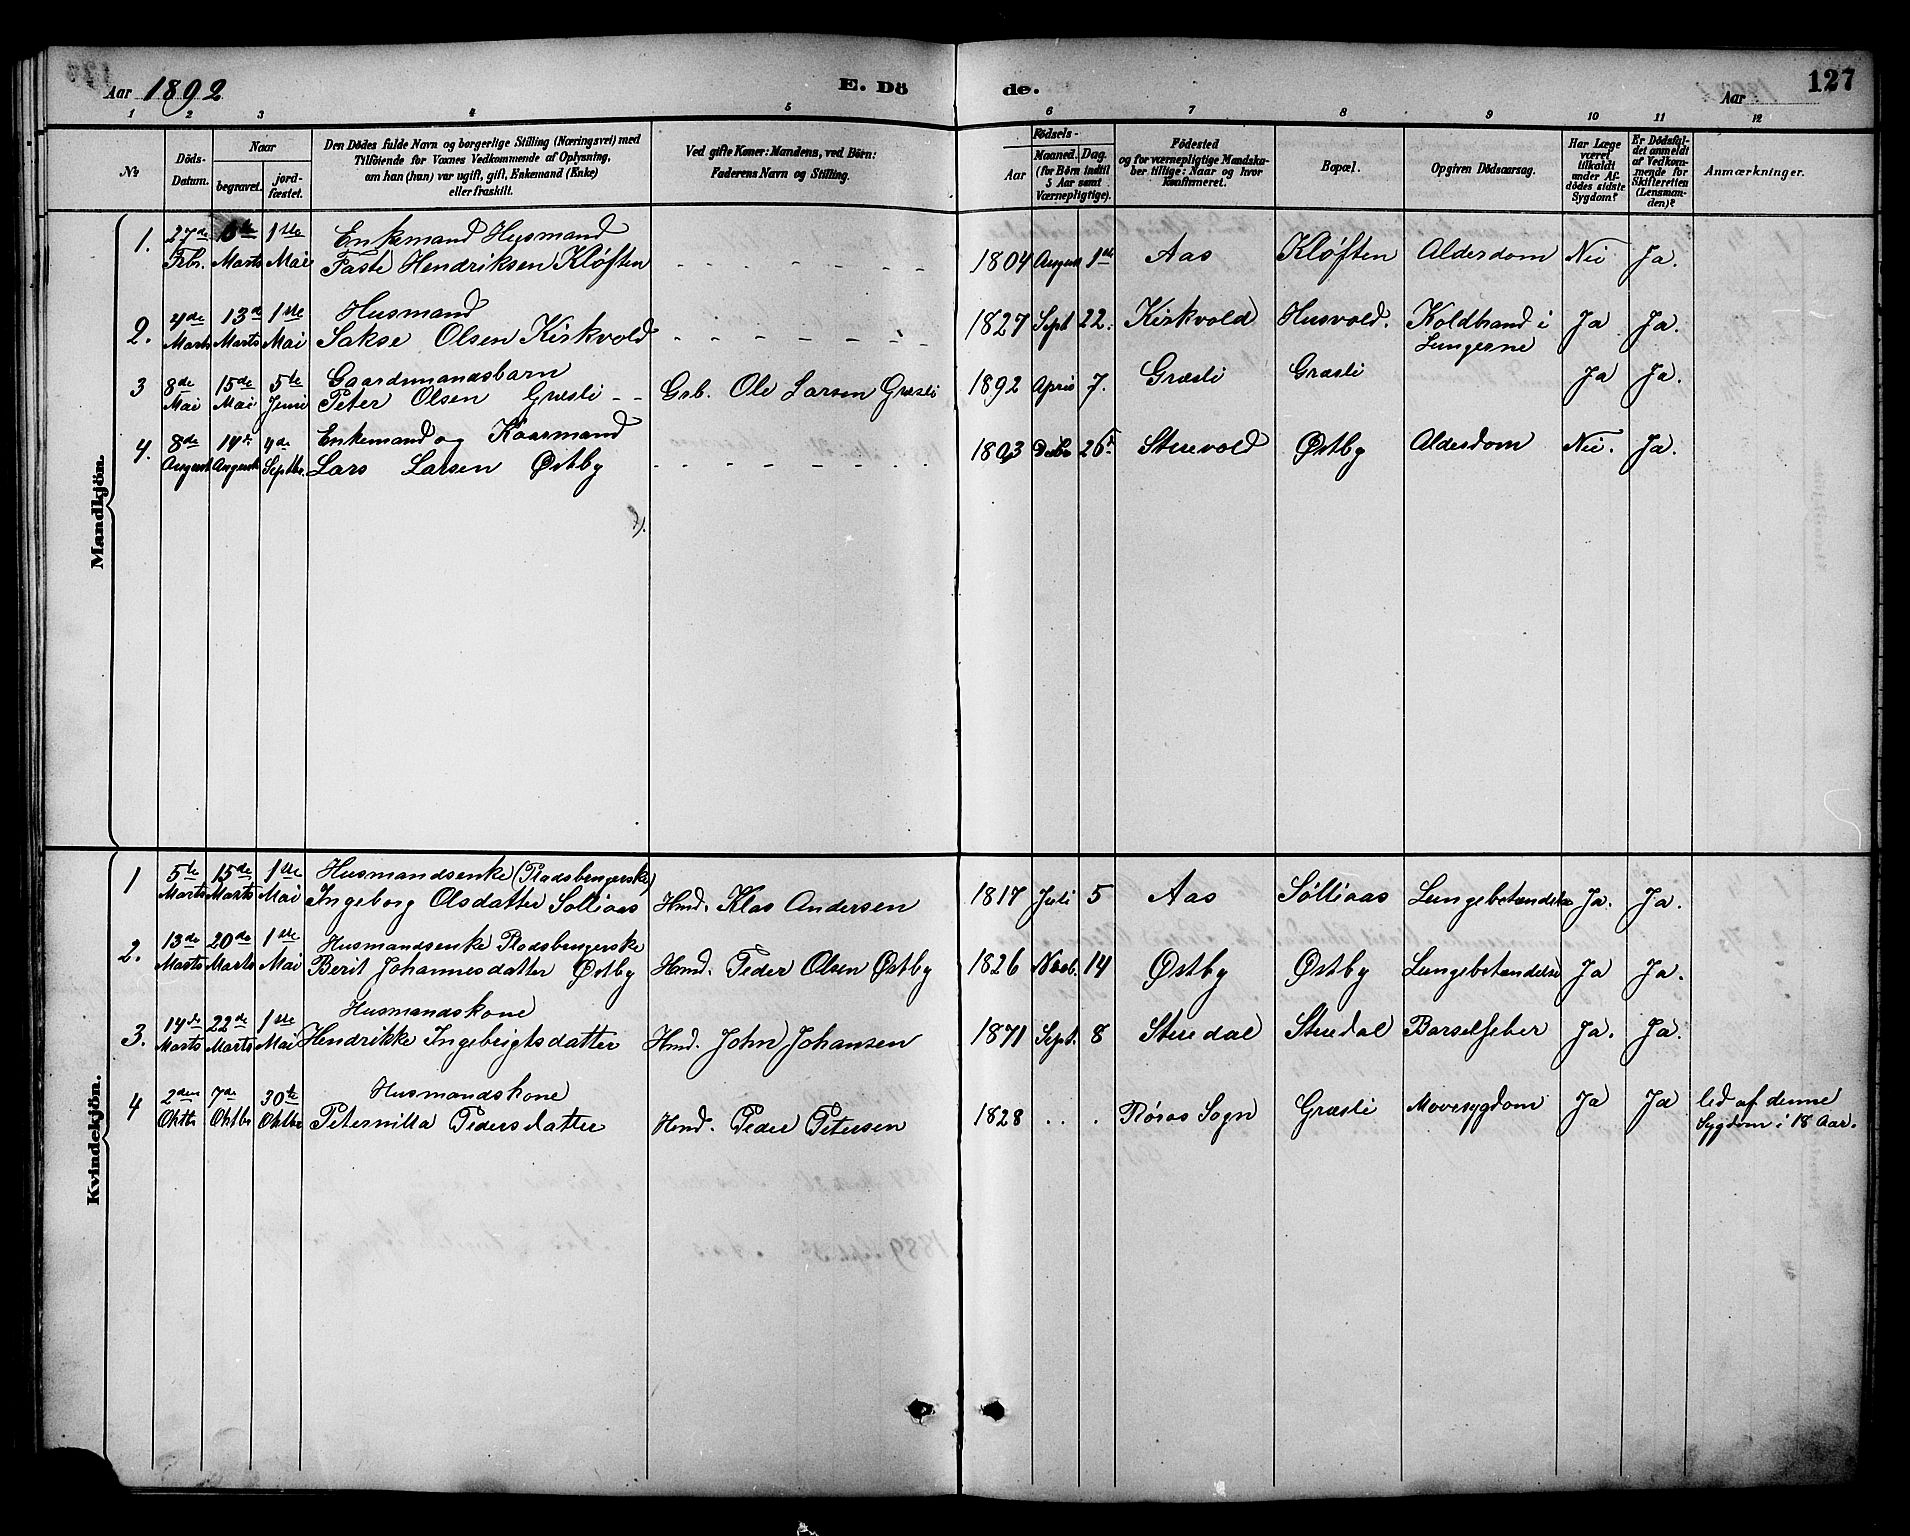 Aar 1892
E. Dö
de.
Aar
127
1 2 3 4 5 6 7 8 9 10 11 12
№
Döds-
Datum.
Naar
begravet.
jord-
fæstet.
Den Dödes fulde Navn og borgerlige Stilling (Næringsvei) med
Tilföiende for Voxnes Vedkommende af Oplysning,
om han (hun) var ugift, gift, Enkemand (Enke)
eller fraskilt.
Ved gifte Koner: Mandens, ved Börn:
Faderens Navn og Stilling.
Födsels-
Aar
Maaned. Dag.
(for Börn indtil
5 Aar samt
Værnepligtige).
Födested
og for værnepligtige Mandska-
ber tillige: Naar og hvor
konfirmeret.
Bopæl.
Opgiven Dödsaarsag.
Har Læge
været
tilkaldt
under Af-
dödes sidste
Sygdom?
Er Dödsfal-
det anmeldt
af Vedkom-
mende for
Skifteretten
(Lensman-
den)?
Anmærkninger.
Mandkjön.
1. 27de 1ste Enkemand Husmand
Febr. Marts Mai Faste Hendriksen Kløften - - - - - - - 1804 August 1ste Aas Kløften Alderdom Nei Ja.
2. 4de 13de 1ste Husmand
Marts Marts Mai Sakse Olsen Kirkvold - - - - - - - 1827 Sept 22. Kirkvold Husvold. Koldbrand i Ja Ja.
Lungerne
3 8de 15de 5te Gaardmandsbarn
Mai Mai Juni Peter Olsen Græsli - - Gsb. Ole Larsen Græsli 1892 April 7. Græsli Græsli Ja Ja.
4. 8de 14de 4de Enkemand og Kaarmand
August August Septbr. Lars Larsen Østby - - - - - - - 1803 Decbr 26de Stuevold Østby Alderdom Nei. Ja.
Kvindekjön.
1 5te 15de 1ste Husmandsenke (Pladsbrugerske)
Marts Marts Mai Ingeborg Olsdatter Sølliaas Hmd. Klas Andersen 1817 Juli 5 Aas Sølliaas Lungebetændelse Ja. Ja.
2. 13de 20de 1ste Husmandsenke Pladsbrugerske
Marts Marts Mai Berit Johannesdatter Østby Hmd. Peder Olsen Østby 1826 Novb. 14 Østby Østby Lungebetændelse Ja Ja.
3. 14de 22de 1ste Husmandskone
Marts Marts Mai Hendrikke Ingebrigtsdatter Hmd. John Johansen 1871 Sept. 8 Stuedal Stuedal Barselfeber Ja. Ja.
4 2den 7de 30te Husmandskone
Oktbr Oktbr Oktbr Peternilla Pedersdatter Hmd. Peder Petersen 1828 . . . Røros Sogn Græsli Mavesygdom Ja Ja led af denne
Sygdom i 18 Aar.